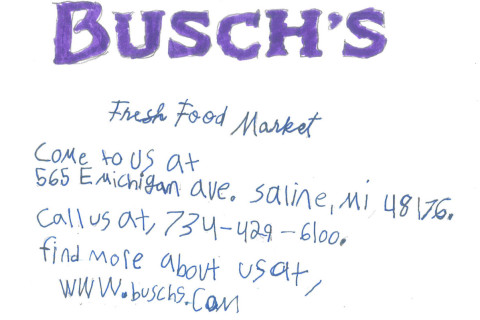 BUSCH'S
Fresh Food Market
Come to us at
565 E michigan ave. saline, mi 48176.
Call us at, 734-429-6100.
find more about us at,
WWW.buschs.Com